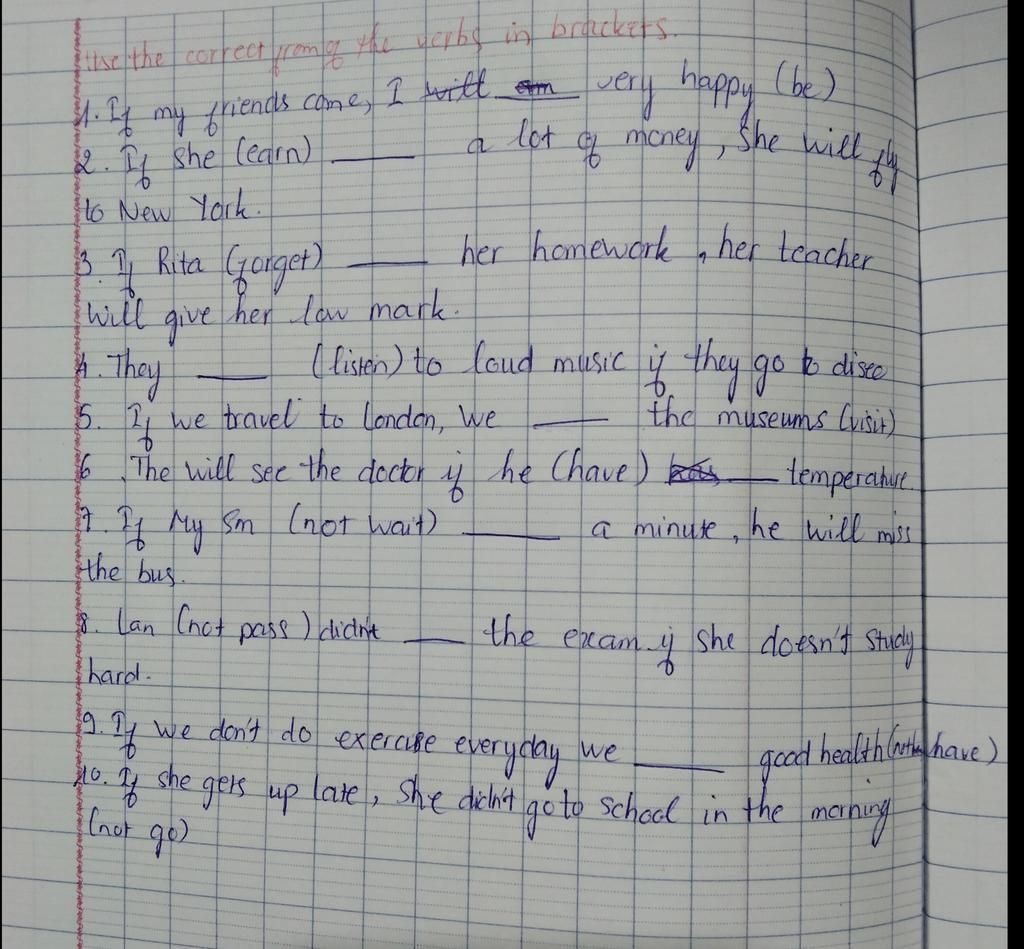 Use the correct from of the verbs in brackets.
1. If my friends come, I will am ___ very happy (be)
2. If she (earn) ___ a lot of money, she will fly
to New York.
3. If Rita (forget) ___ her homework, her teacher
Will give her low mark.
4. They ___ (listen) to loud music if they go to disco
5. If we travel to London, we ___ the museums (visit)
6. The will see the doctor if he (have) has ___ temperature.
7. If My Son (not wait) ___ a minute, he will miss
the bus.
8. Lan (not pass) didn't ___ the exam if she doesn't study
hard.
9. If we don't do exercise everyday we ___ good health (not have)
10. If she gets up late, She didn't go to school in the morning
(not go)